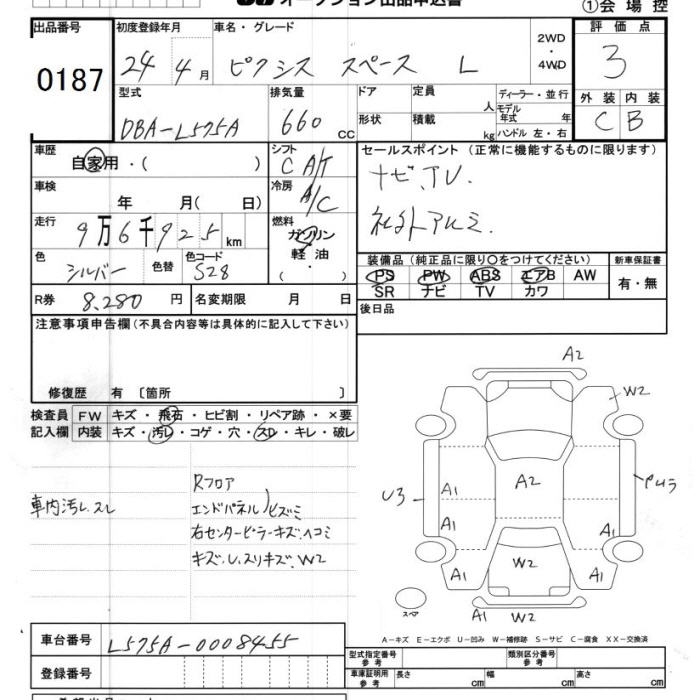 オークション出品申込書
①会場控
出品番号 初度登録年月 車名・グレード 評価点
0187 24年 4月 ピクシス スペース L 2WD・4WD 3
型式 排気量 ドア 定員 人 ディーラー・並行 外装 内装
モデル年式 年
DBA-L575A 660 CC 形状 積載 kg ハンドル 左・右 C B
車歴 シフト セールスポイント (正常に機能するものに限ります)
自家用・( ) C A/T ナビ、TV.
車検 冷房
年 月( 日) A/C 社外アルミ.
走行 燃料
9万6千925km ガソリン
色 色替 色コード 軽油 装備品 (純正品に限り○をつけてください) 新車保証書
シルバー S28 ・ PS PW ABS エアB AW 有・無
R券 8,280円 名変期限 月 日 SR ナビ TV カワ
注意事項申告欄 (不具合内容等は具体的に記入して下さい) 後日品
修復歴 有 〔箇所 〕
検査員 FW キズ・飛石・ヒビ割・リペア跡・×要
記入欄 内装 キズ・汚レ・コゲ・穴・スレ・キレ・破レ
Rフロア
車内汚レ.スレ エンドパネル)ヒズミ
右センターピラーキズ、ヘコミ
キズ.U.スリキズ.W2
A2
W2
A2
U3 A1
A1 A1
W2
A1 A1
スペア A1 W2
A-キズ E-エクボ U-凹み W-補修跡 S-サビ C-腐食 XX-交換済
車台番号 L575A-0008455
型式指定番号 参考 類別区分番号 参考
登録番号 車庫証明用 参考 長さ cm 幅 cm 高さ cm